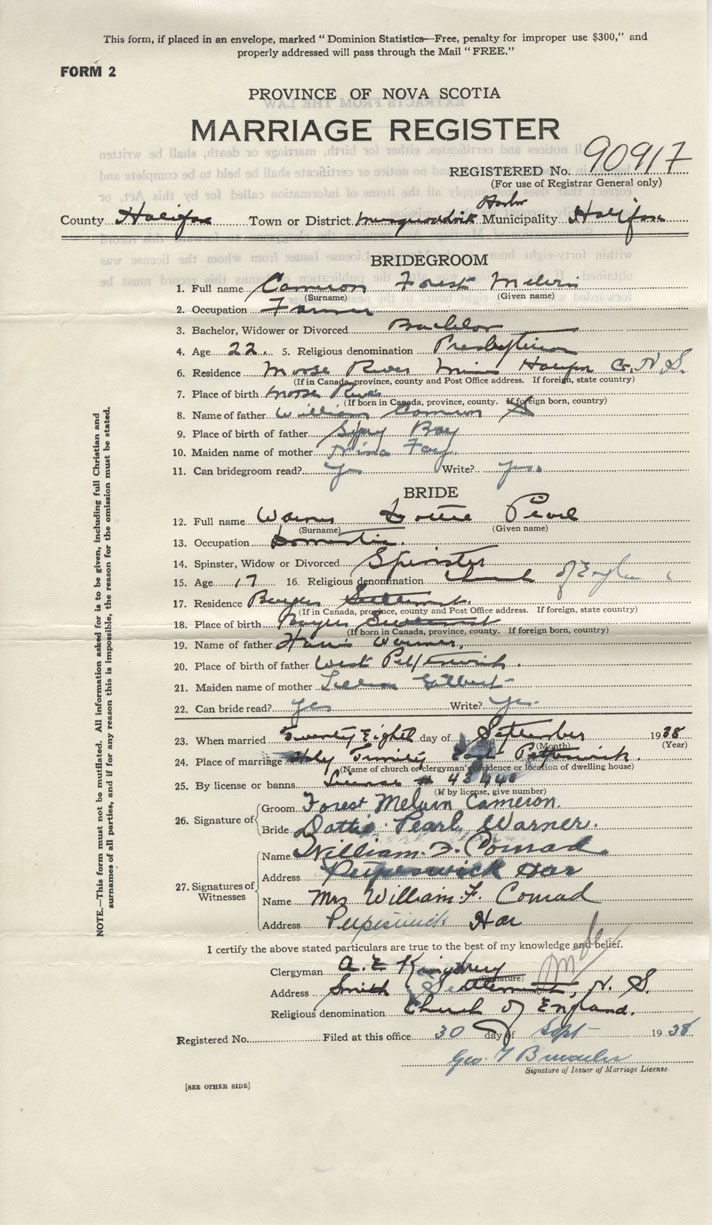 This form, if placed in an envelope, marked "Dominion Statistics—Free, penalty for improper use $300," and
properly addressed will pass through the Mail "FREE."
FORM 2
PROVINCE OF NOVA SCOTIA
MARRIAGE REGISTER
REGISTERED No. 90917
(For use of Registrar General only)
Harbor
County Halifax Town or District Musquodoboit Municipality Halifax
BRIDEGROOM
1. Full name Cameron Forest Melvin
(Surname) (Given name)
2. Occupation Farmer
3. Bachelor, Widower or Divorced Bachelor
4. Age 22 5. Religious denomination Presbyterian
6. Residence Moose River Mines Halifax Co. N. S.
(If in Canada, province, county and Post Office address. If foreign, state country)
7. Place of birth Moose River
(If born in Canada, province, county. If foreign born, country)
8. Name of father William Cameron
9. Place of birth of father Spry Bay
10. Maiden name of mother Fay
11. Can bridegroom read? Yes Write? yes.
BRIDE
12. Full name Warner Dottie Pearl
(Surname) (Given name)
13. Occupation Domestic
14. Spinster, Widow or Divorced Spinster
15. Age 17 16. Religious denomination Church of England
17. Residence Settlement
(If in Canada, province, county and Post Office address. If foreign, state country)
18. Place of birth Settlement
(If born in Canada, province, county. If foreign born, country)
19. Name of father Harris Warner
20. Place of birth of father West Petpeswick
21. Maiden name of mother Lillian Gilbert
22. Can bride read? yes Write? yes.
23. When married Twenty Eighth day of September 1938
(Month) (Year)
24. Place of marriage Holy Trinity Petpeswick.
(Name of church or clergyman's residence or location of dwelling house)
25. By license or banns License #
(If by license, give number)
26. Signature of Groom Forest Melvin Cameron.
Bride Dottie Pearl Warner.
27. Signatures of Witnesses Name William F. Conrad
Address Petpeswick Har
Name Mrs William F. Conrad
Address Har
I certify the above stated particulars are true to the best of my knowledge and belief.
Clergyman A. E.
(Signature)
Address Smith Settlement, N. S.
Religious denomination Church of England.
Registered No. Filed at this office 30 day of Sept 1938
Geo.
Signature of Issuer of Marriage License
[SEE OTHER SIDE]
NOTE.—This form must not be mutilated. All information asked for is to be given, including full Christian and
surnames of all parties, and if for any reason this is impossible, the reason for the omission must be stated.